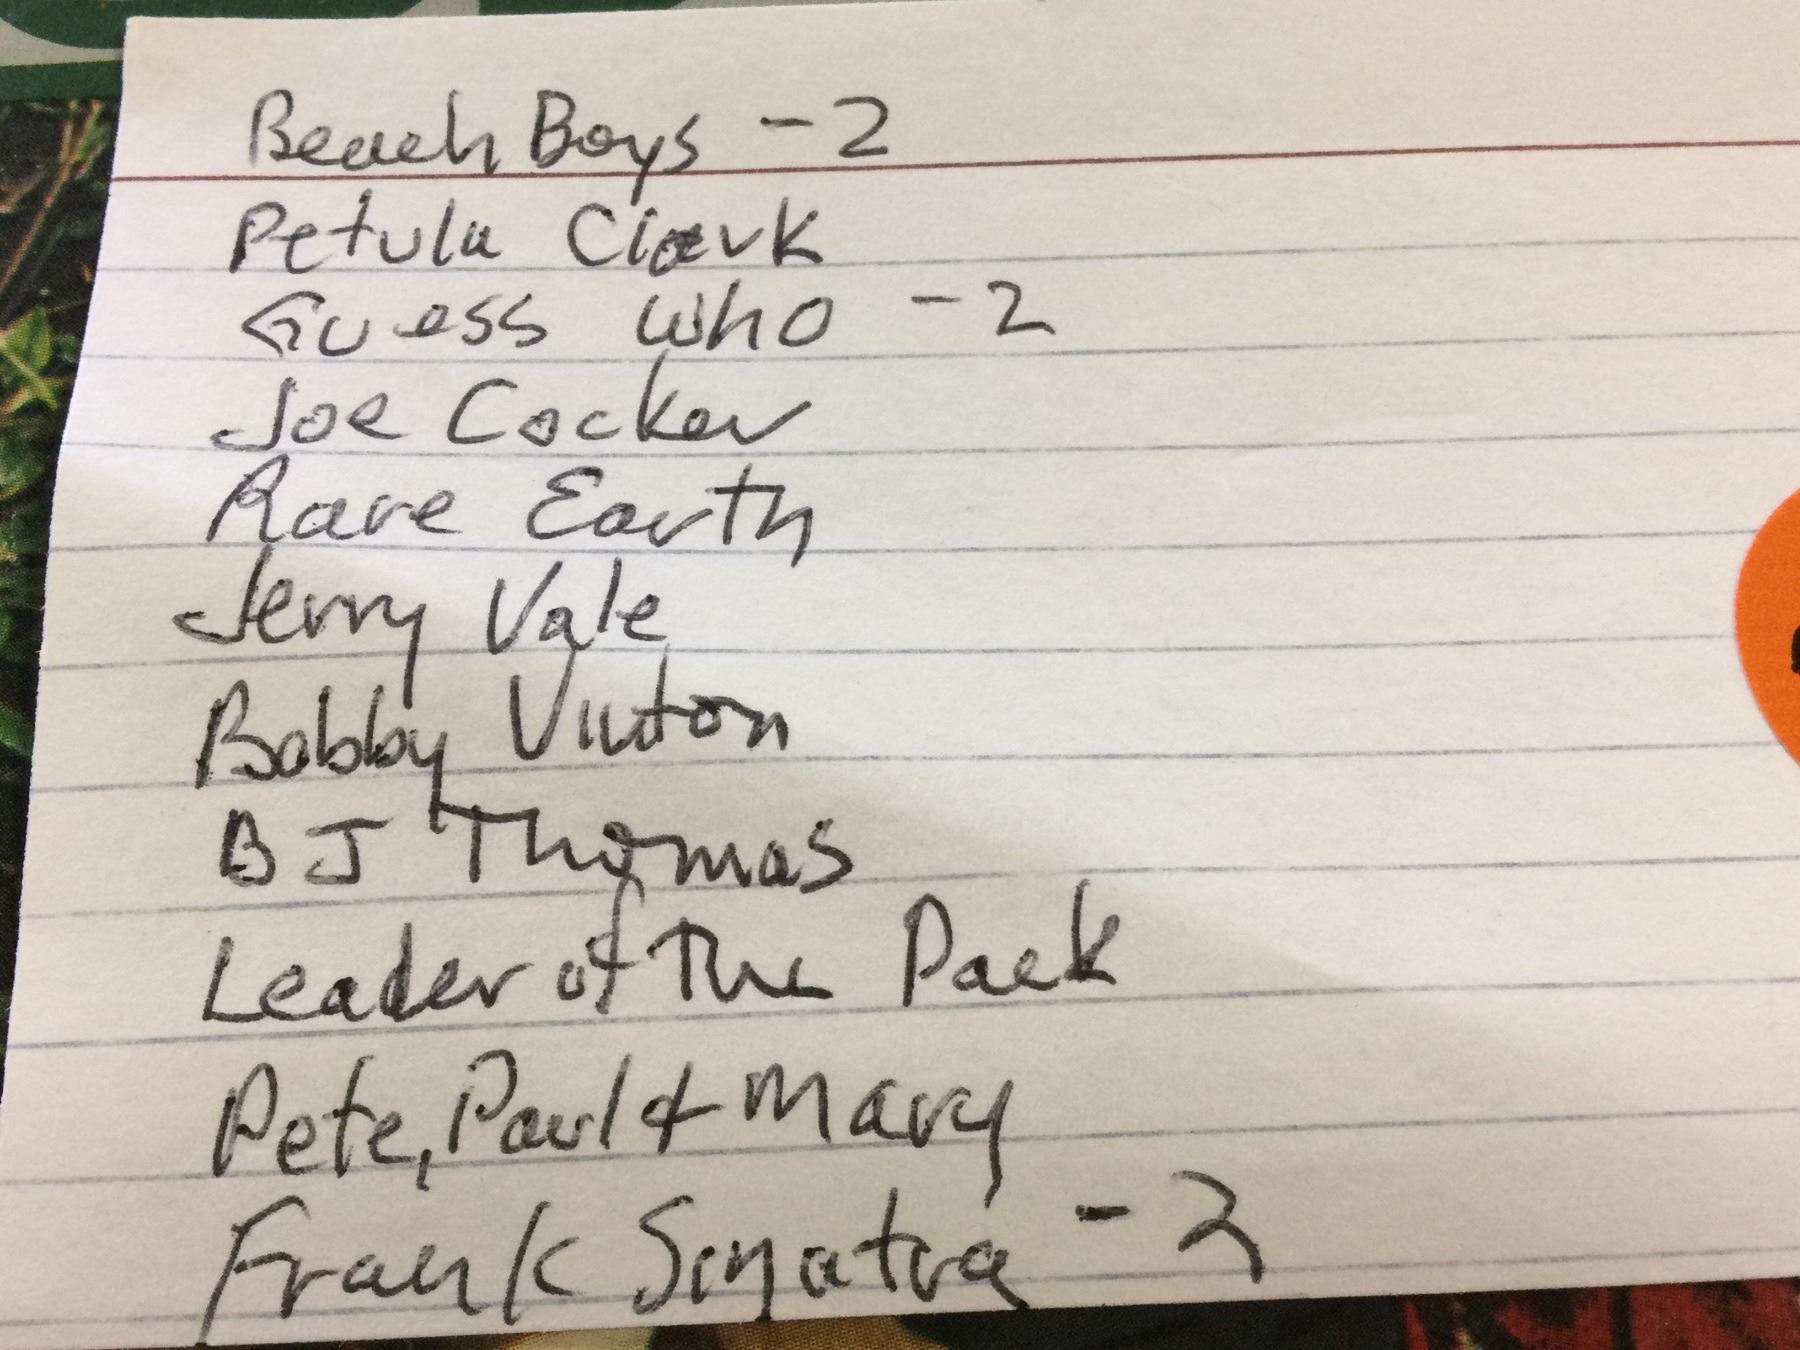 Beach Boys - 2
Petula Clark
Guess Who - 2
Joe Cocker
Rare Earth
Jerry Vale
Bobby Vinton
B J Thomas
Leader of The Pack
Pete, Paul & Mary
Frank Sinatra - 2